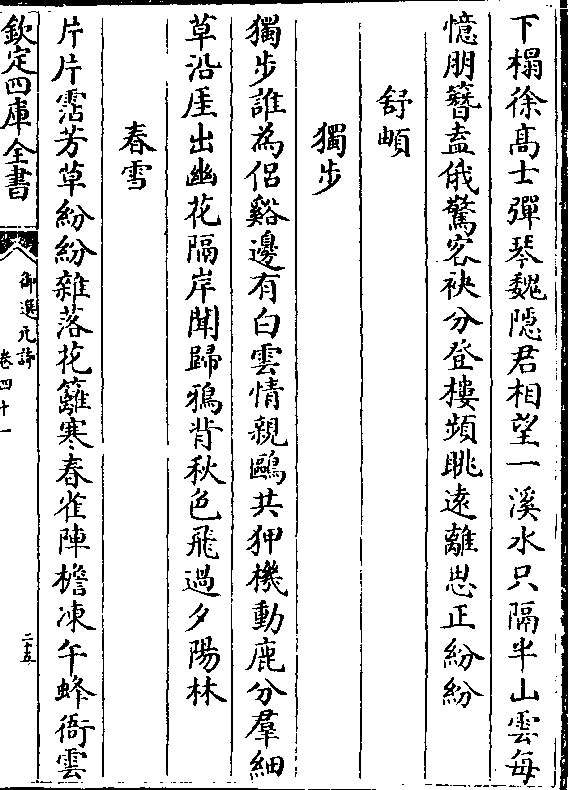 下榻徐髙士彈琴魏隠君相望一溪水只隔半山雲每
憶朋簪盍俄驚客袂分登樓頻眺遠離思正紛紛
舒頔
獨步
獨步誰為侣谿邊有白雲情親鷗共狎機動鹿分羣細
草沿厓出幽花隔岸聞歸鴉背秋色飛過夕陽林
春雪
片片霑芳草紛紛雜落花籬寒春雀陣檐凍午蜂衙雲
欽定四庫全書
御選元詩
卷四十一
二十五